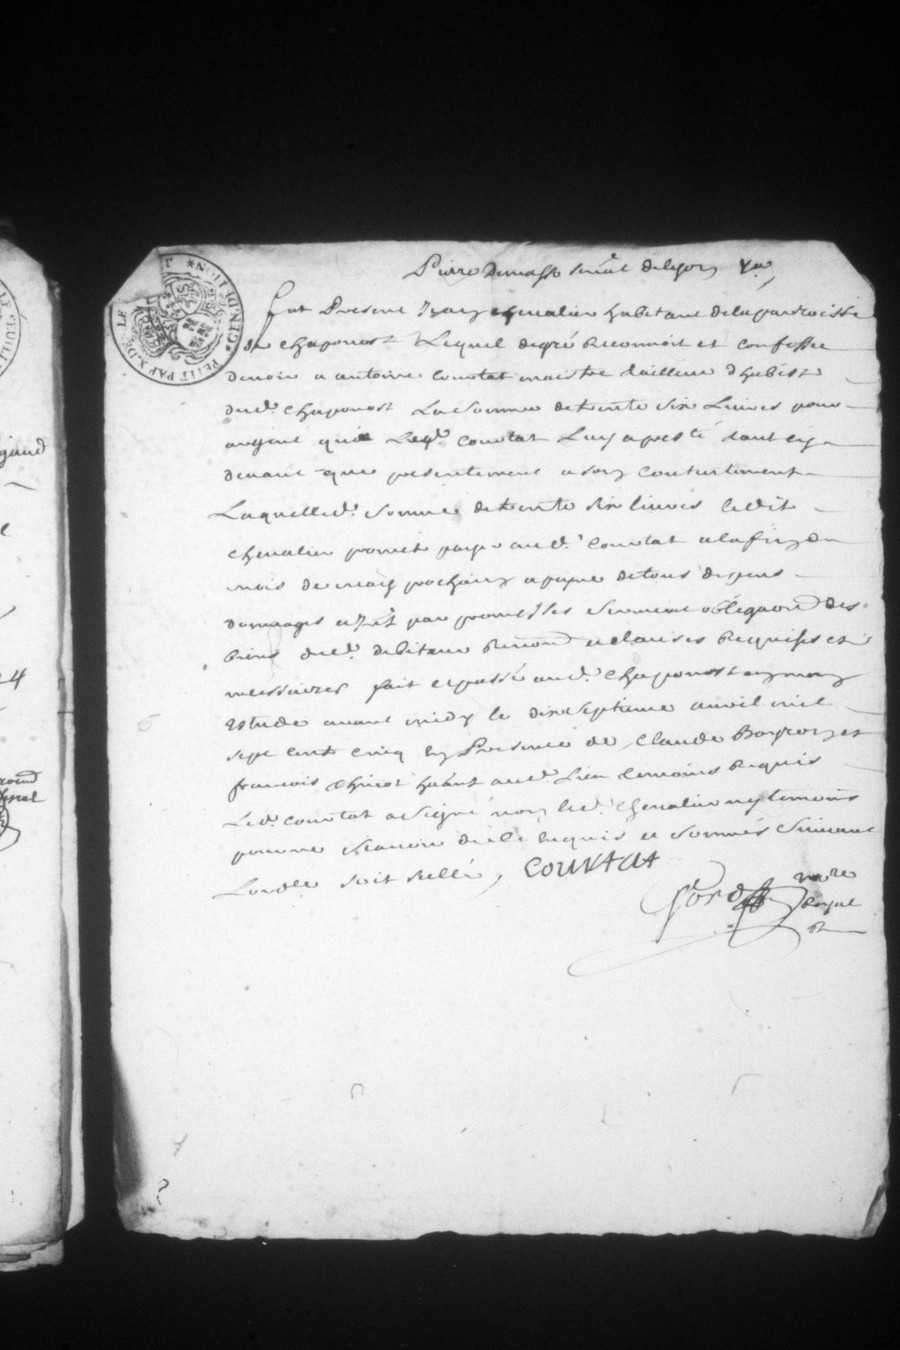 fut Present Izacq chevalier habitant de la parroisse
de chaponost Lequel degré Reconnoit et confesse
devoir a antoine courtat maistre tailleur d'habist
dud. chaponost La somme de trente six Livres pour
argent que Led. courtat Luy a presté tant cy
devant que presentement a son contentement
Laquelled. somme de trente six livres Ledit
chevalier promet payer aud. courtat a la fin du
mois de may prochain a payne de tous depens
dommages et par promesses serment obligaon des
biens dud. debiteur Renond et clauses Requises et
necessaires fait et passé aud. chaponost en mon
estude avant midy le dixseptieme avril mil
sept cent cinq En Presence de Claude Boyron et
francois habant aud. Lieu temoins Requis
Led. courtat a signé non led. chevalier ny temoins
pour ne scavoir de ce Enquis et sommés suivant
Lordce soit sellé, COURTAT
royal
LE
PETIT PAP